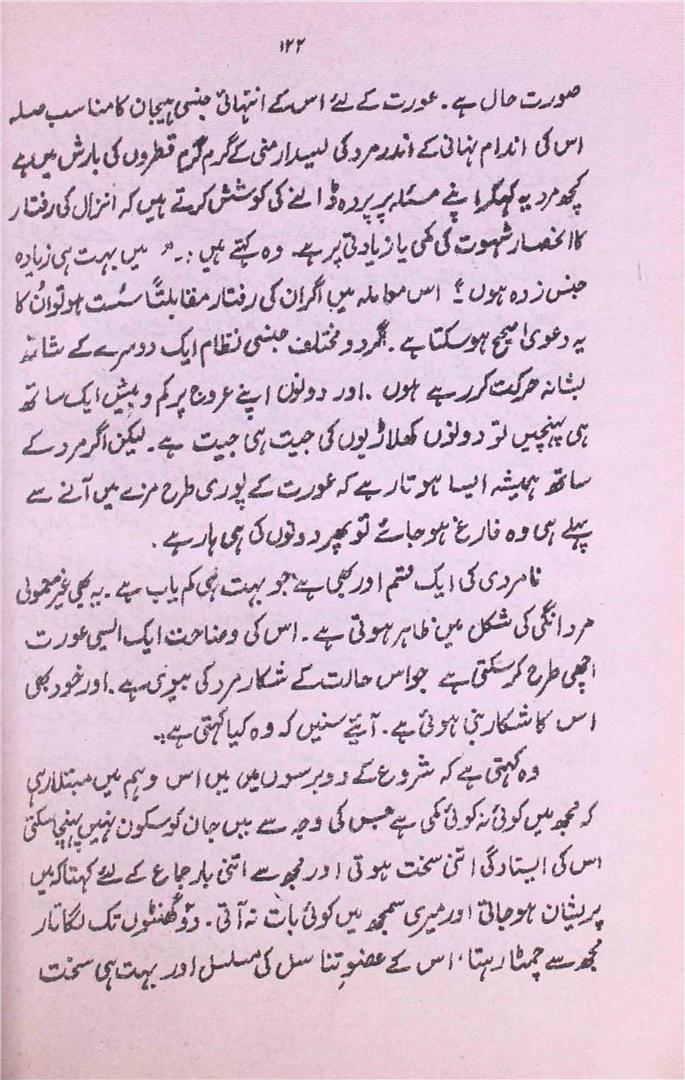 ۱۲۲
صورت حال ہے۔ عورت کے لئے اس کے انتہائی جنسی ہیجان کا مناسب صلہ
اس کی اندام نہانی کے اندر مرد کی لیسدار منی کے گرم گرم قطروں کی بارش میں ہے
کچھ مرد یہ کہکر اپنے مسئلہ پر پردہ ڈالنے کی کوشش کرتے ہیں کہ انزال کی رفتار
کا انحصار شہوت کی کمی یا زیادتی پر ہے۔ وہ کہتے ہیں :۔ "میں بہت ہی زیادہ
جنس زدہ ہوں"! اس معاملہ میں اگر ان کی رفتار مقابلتاً سُست ہو تو اُن کا
یہ دعویٰ صحیح ہو سکتا ہے۔ اگر دو مختلف جنسی نظام ایک دوسرے کے شانہ
بشانہ حرکت کر رہے ہوں۔ اور دونوں اپنے عروج پر کم و بیش ایک ساتھ
ہی پہنچیں تو دونوں کھلاڑیوں کی جیت ہی جیت ہے۔ لیکن اگر مرد کے
ساتھ ہمیشہ ایسا ہوتا رہے کہ عورت کے پوری طرح مزے میں آنے سے
پہلے ہی وہ فارغ ہو جائے تو پھر دونوں کی ہی ہار ہے۔
نامردی کی ایک قسم اور بھی ہے جو بہت ہی کم یاب ہے۔ یہ بھی غیر معمولی
مردانگی کی شکل میں ظاہر ہوتی ہے۔ اس کی وضاحت ایک ایسی عورت
اچھی طرح کر سکتی ہے جو اس حالت کے شکار مرد کی بیوی ہے۔ اور خود بھی
اس کا شکار بنی ہوئی ہے۔ آیئے سنیں کہ وہ کیا کہتی ہے:۔
وہ کہتی ہے کہ شروع کے دو برسوں میں میں اس وہم میں مبتلا رہی
کہ مجھ میں کوئی نہ کوئی کمی ہے جس کی وجہ سے میں جان کو سکون نہیں پہنچا سکتی
اس کی ایستادگی اتنی سخت ہوتی اور مجھ سے اتنی بار جماع کے لئے کہتا کہ میں
پریشان ہو جاتی اور میری سمجھ میں کوئی بات نہ آتی۔ دو گھنٹوں تک لگاتار
مجھ سے چمٹا رہتا، اس کے عضوِ تناسل کی مسلسل اور بہت ہی سخت